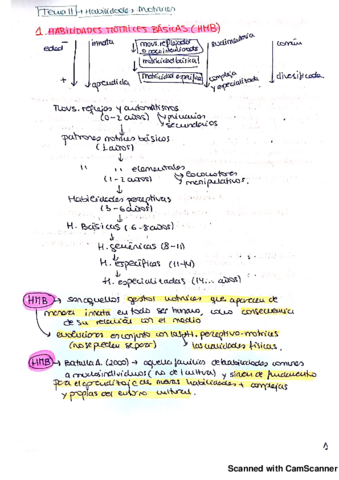 Tema 11 → Habilidades Motrices
1. HABILIDADES MOTRICES BÁSICAS (HMB)
edad innata movs. reflejos rudimentaria común
motricidad básica
+ aprendida motricidad específica compleja y especializada diversificada
Movs. reflejos y automatismos
(0-2 años) → primarios
secundarios
patrones motrices básicos
(1 años)
" " elementales
(1-2 años) → locomotores
manipulativos.
Habilidades perceptivas
(3-6 años)
H. Básicas (6-8 años)
H. genéricas (8-11)
H. específicas (11-14)
H. especializadas (14... años)
HMB → son aquellos gestos motrices que aparecen de
manera innata en todo ser humano, como consecuencia
de su relación con el medio
→ evolucionan en conjunto con las H. perceptivo-motrices
(no se pueden separar) → las cualidades físicas.
HMB → Batalla A. (2000) → aquella familia de habilidades comunes
a muchos individuos (no de 1 cultura) y sirven de fundamento
para el aprendizaje de nuevas habilidades + complejas
y propias del entorno cultural.
1
Scanned with CamScanner